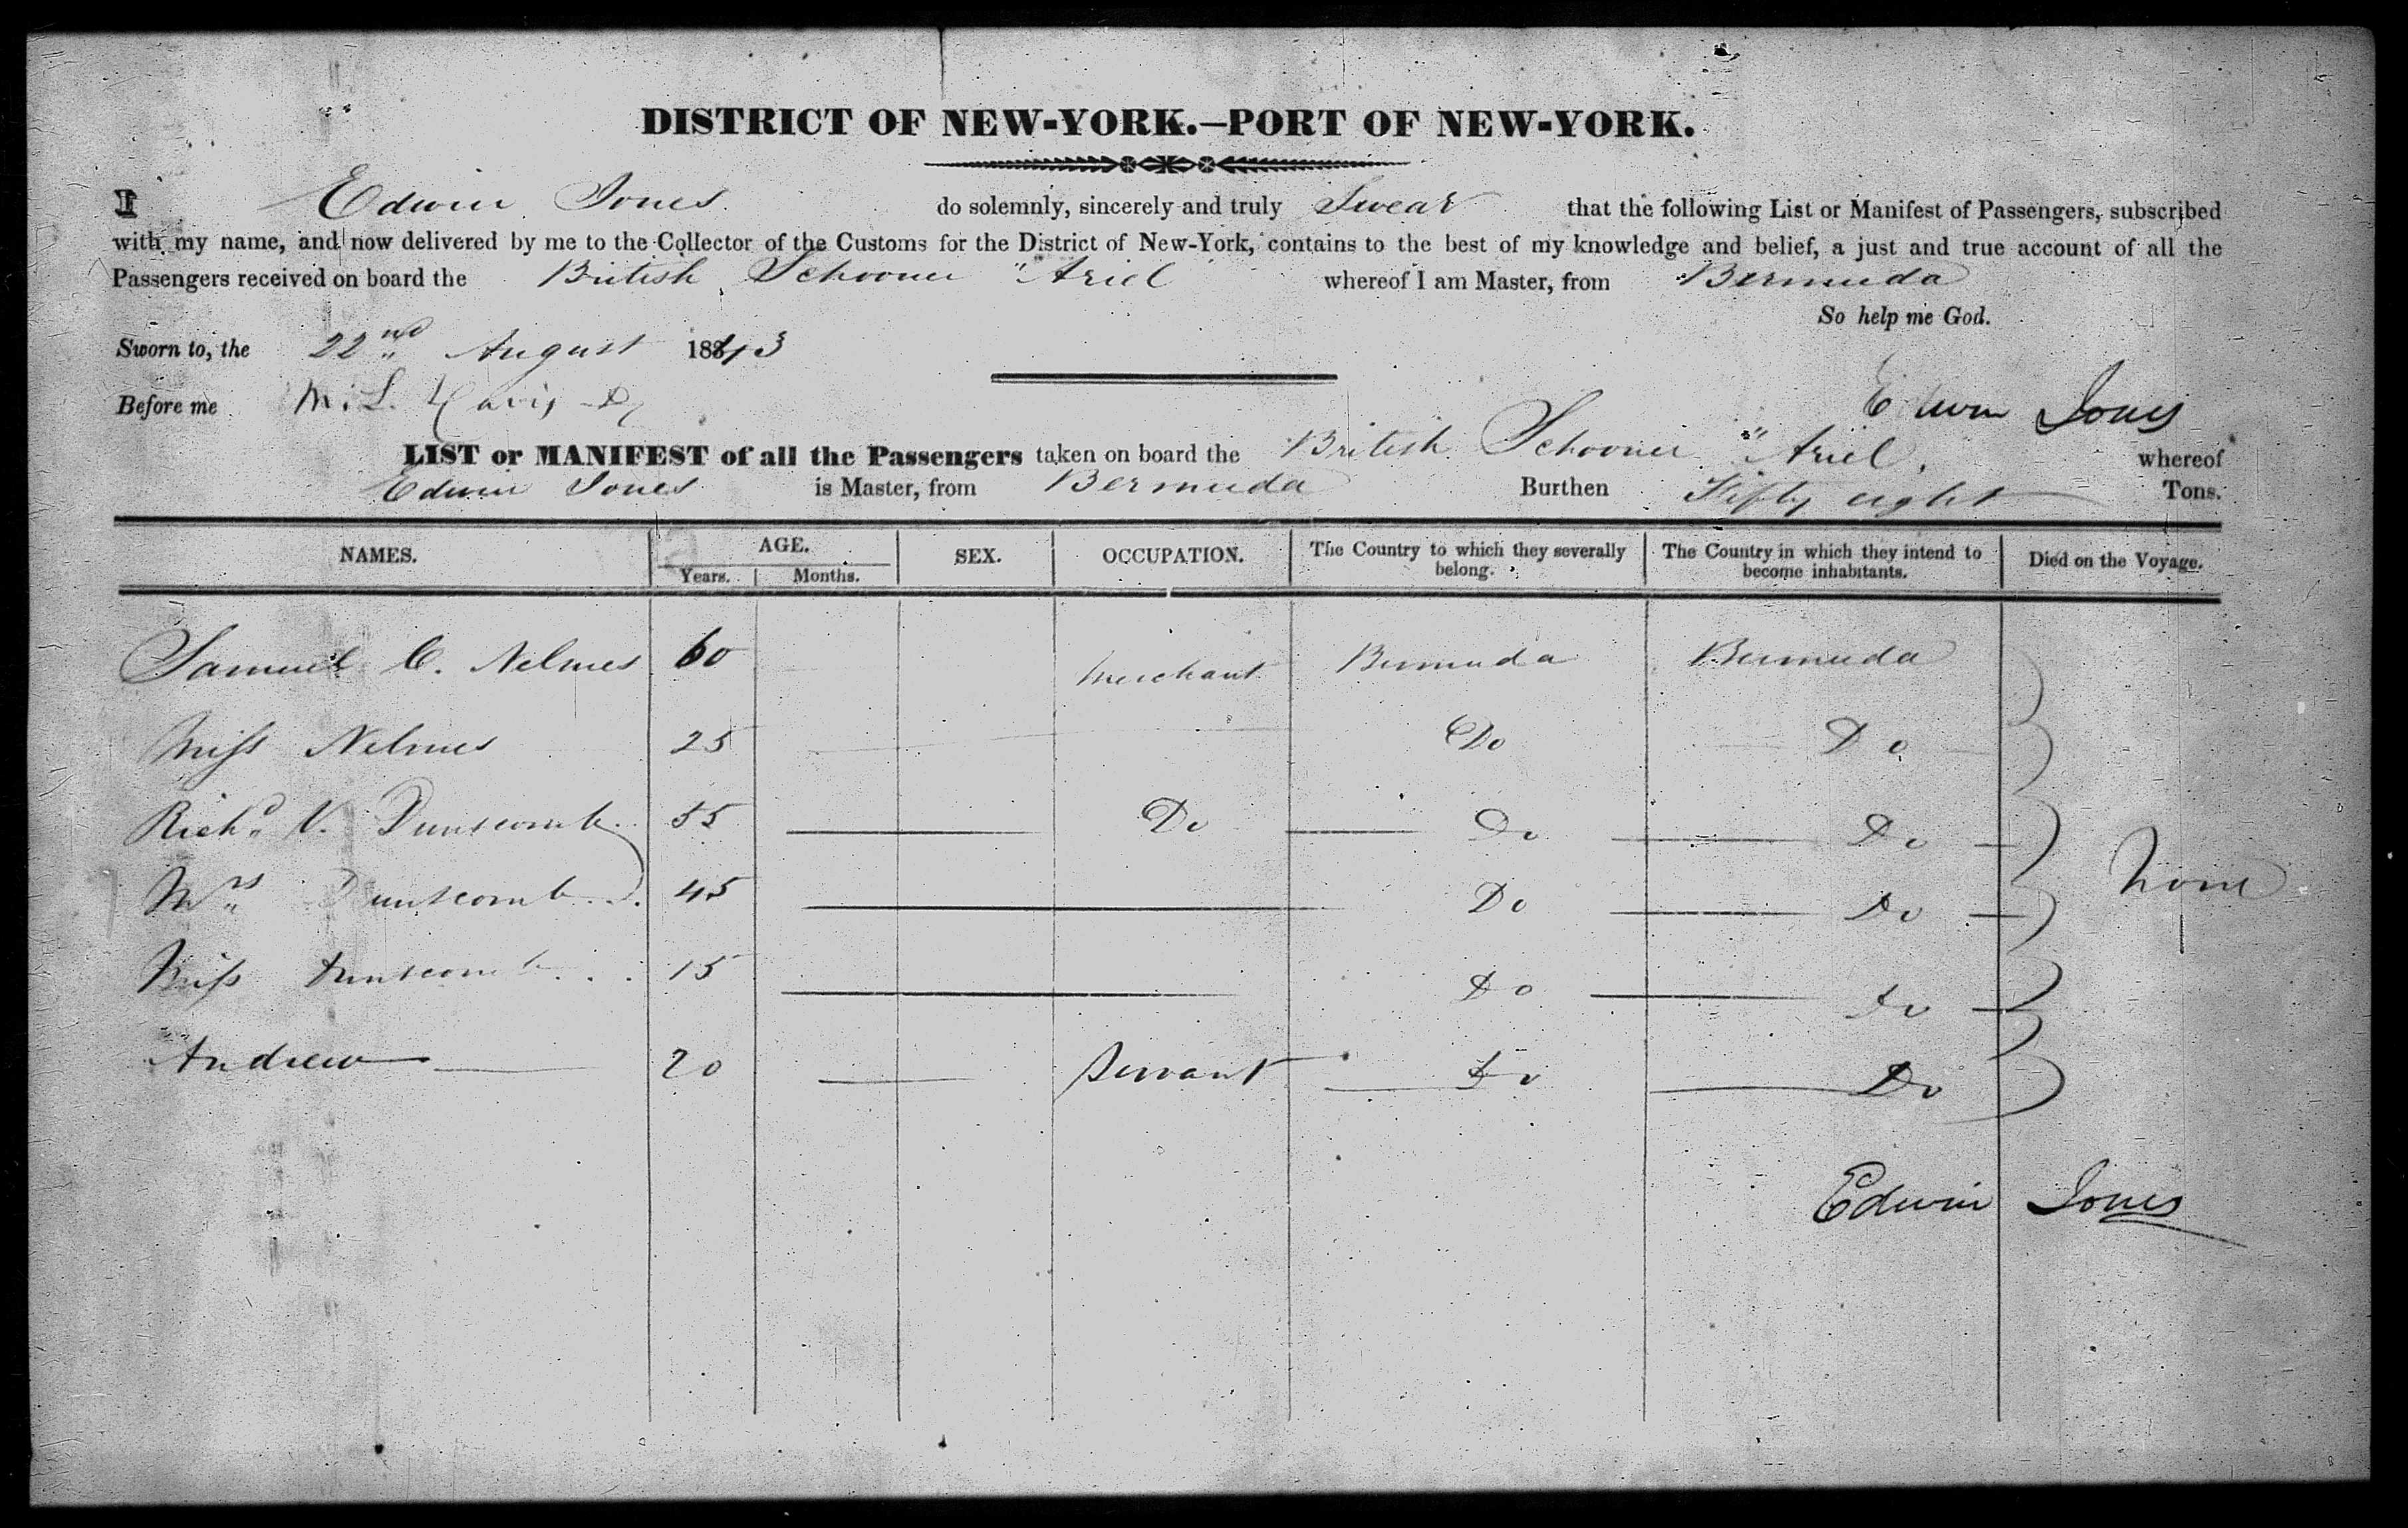 DISTRICT OF NEW-YORK.—PORT OF NEW-YORK.
I Edwin Jones do solemnly, sincerely and truly Swear that the following List or Manifest of Passengers, subscribed
with my name, and now delivered by me to the Collector of the Customs for the District of New-York, contains to the best of my knowledge and belief, a just and true account of all the
Passengers received on board the British Schooner "Ariel" whereof I am Master, from Bermuda
So help me God.
Sworn to, the 22nd August 1843
Before me M. L. Davis
Edwin Jones
LIST or MANIFEST of all the Passengers taken on board the British Schooner "Ariel, whereof
Edwin Jones is Master, from Bermuda Burthen Fifty eight Tons.
NAMES. AGE. SEX. OCCUPATION. The Country to which they severally belong. The Country in which they intend to become inhabitants. Died on the Voyage.
Years. Months.
Samuel C. Nelmes 60 Merchant Bermuda Bermuda
Miss Nelmes 25 Do Do
Richd V. Dunscomb 55 Do Do Do
Mrs Dunscomb 45 Do Do
None
Miss Dunscomb 15 Do Do
Andrew 20 Servant Do Do
Edwin Jones